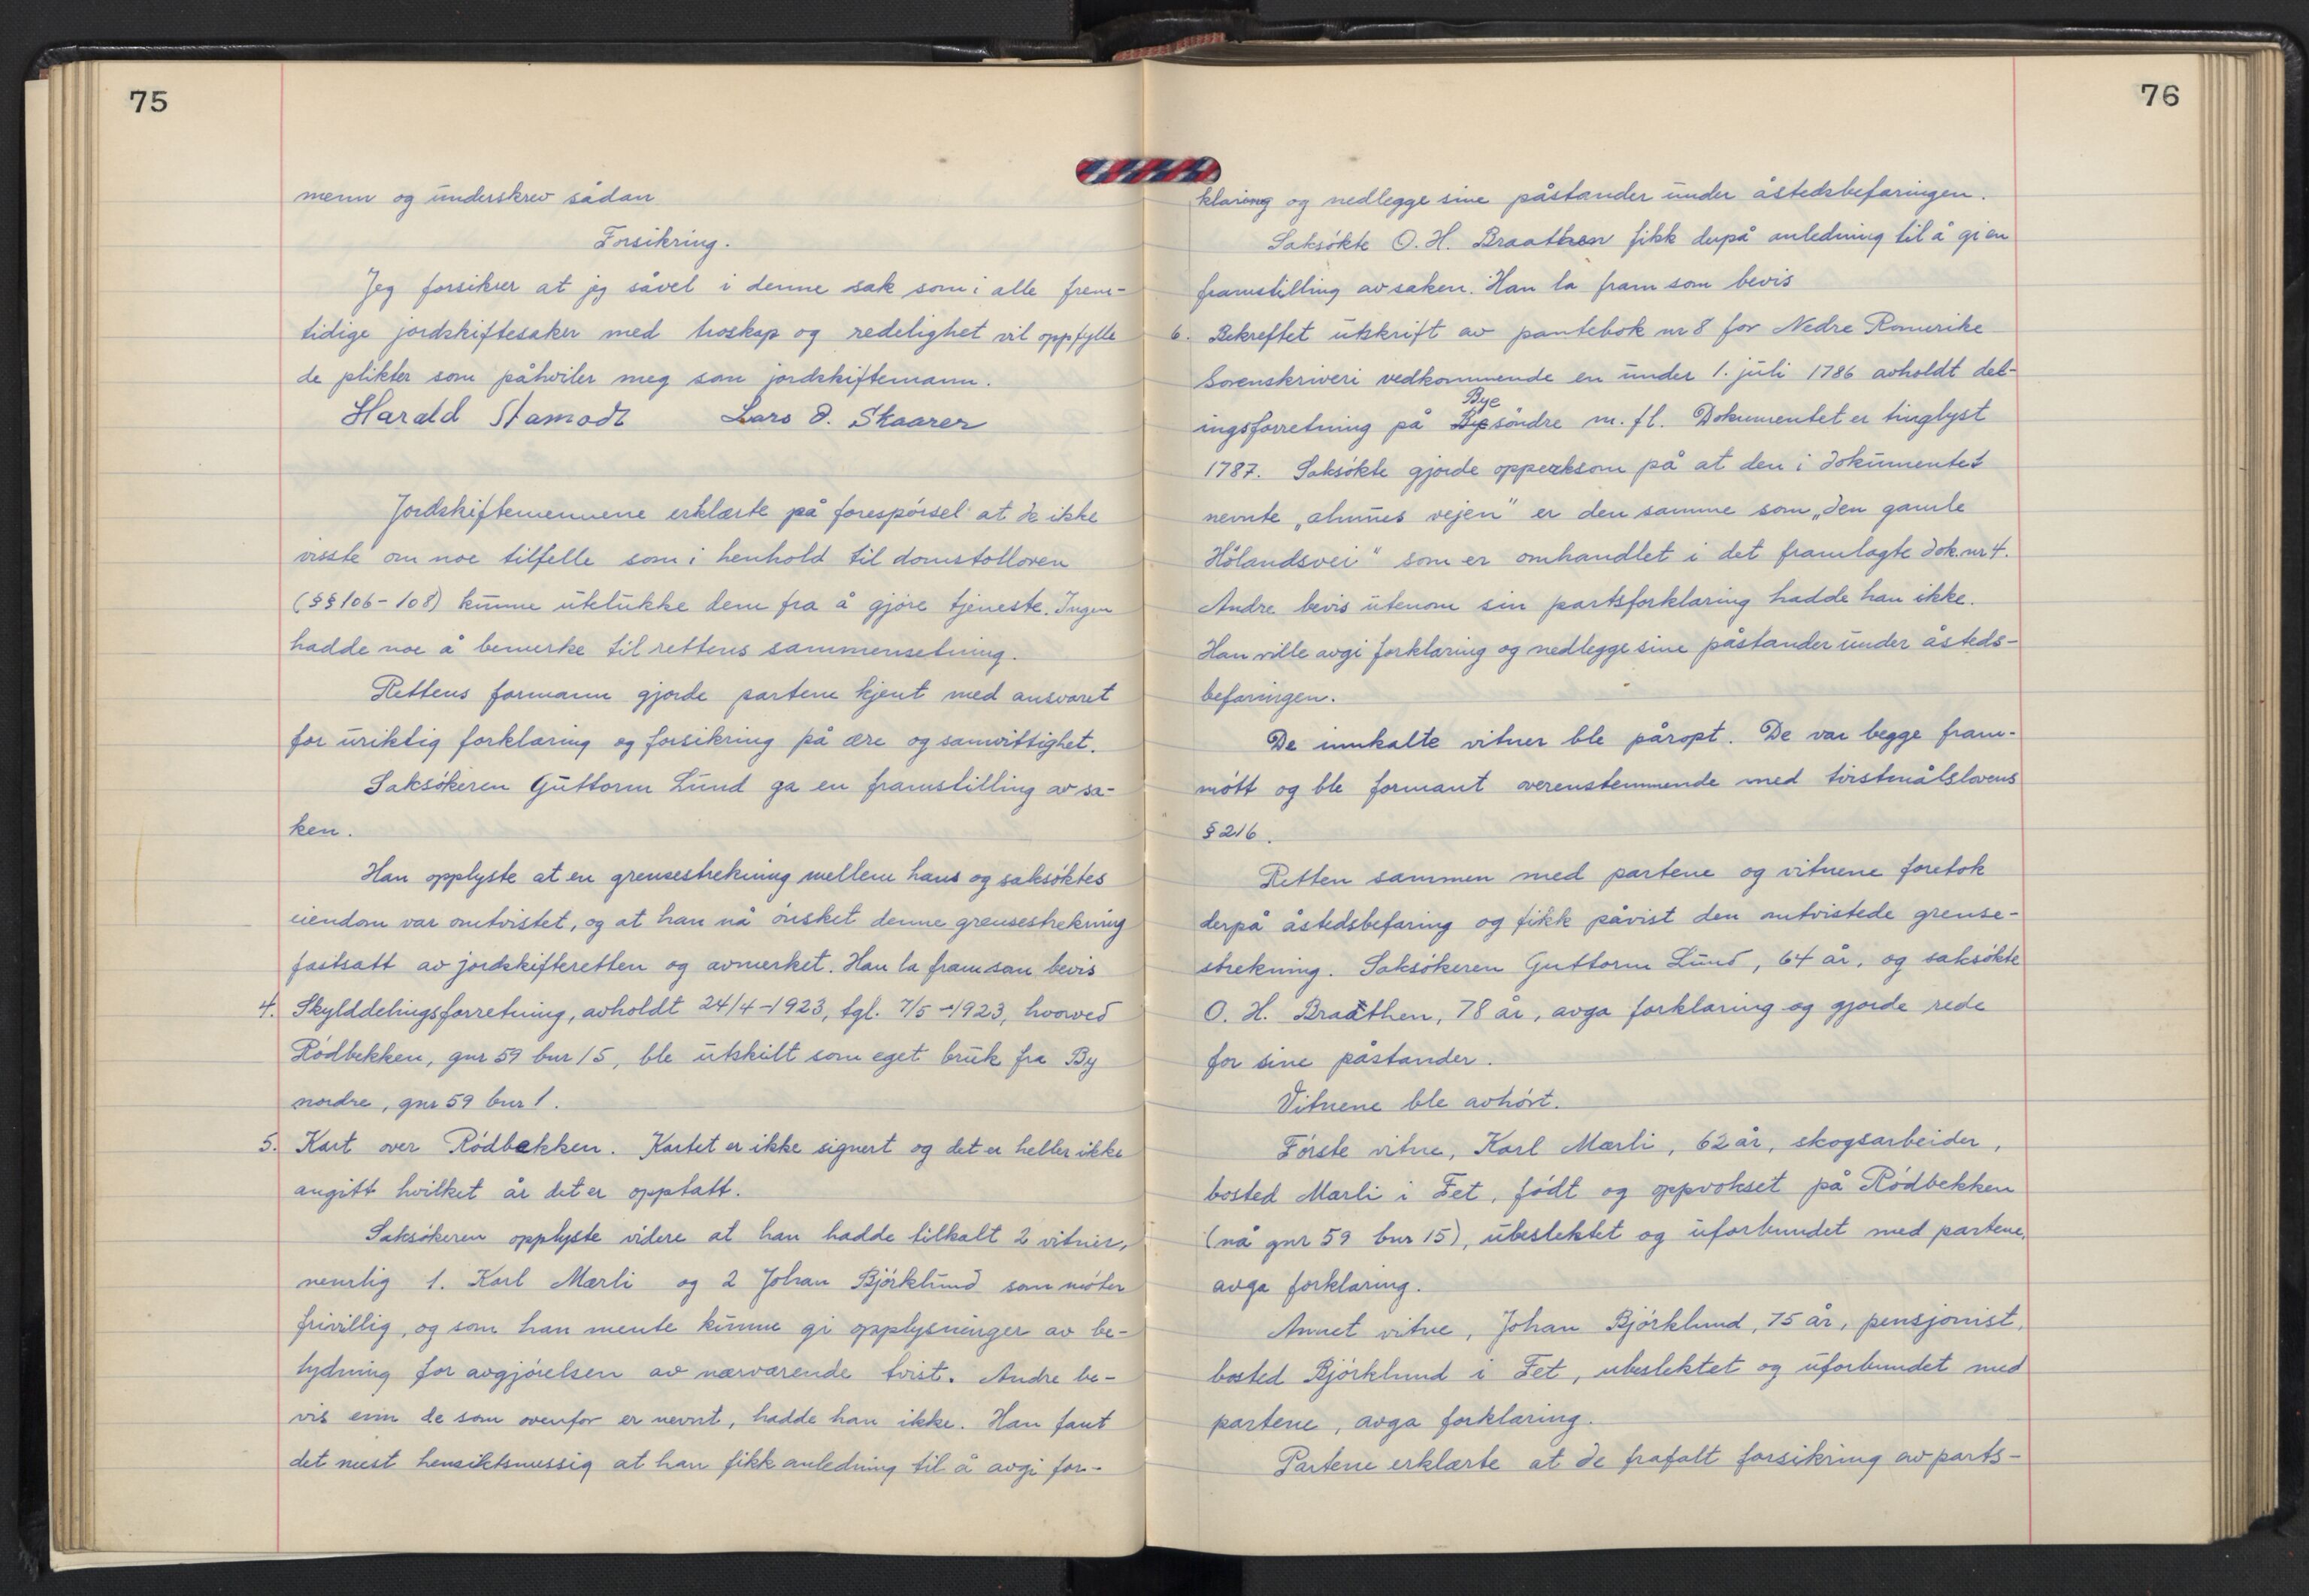 75
menn og underskrev sådan
Forsikring.
Jeg forsikrer at jeg såvel i denne sak som i alle frem-
tidige jordskiftesaker med troskap og redelighet vil oppfylle
de plikter som påhviler meg som jordskiftemann.
Harald Stamodt Lars O. Skaarer
Jordskiftemennene erklærte på forespørsel at de ikke
visste om noe tilfelle som i henhold til domstolloven
(§§ 106-108) kunne utelukke dem fra å gjøre tjeneste. Ingen
hadde noe å bemerke til rettens sammensetning.
Rettens formann gjorde partene kjent med ansvaret
for uriktig forklaring og forsikring på ære og samvittighet.
Saksøkeren Guttorm Lund ga en framstilling av sa-
ken.
Han opplyste at en grensestrekning mellem hans og saksøktes
eiendom var omtvistet, og at han nå ønsket denne grensestrekning
fastsatt av jordskifteretten og avmerket. Han la fram som bevis
4. Skylddelingsforretning, avholdt 24/4-1923, tgl. 7/5-1923, hvorved
Rødbekken, gnr 59 bnr 15, ble utskilt som eget bruk fra By
nordre, gnr 59 bnr 1.
5. Kart over Rødbekken. Kartet er ikke signert og det er heller ikke
angitt hvilket år det er opptatt.
Saksøkeren opplyste videre at han hadde tilkalt 2 vitner,
nemlig 1. Karl Mærli og 2 Johan Bjørklund som møter
frivillig, og som han mente kunne gi opplysninger av be-
tydning for avgjørelsen av nærværende tvist. Andre be-
vis enn de som ovenfor er nevnt, hadde han ikke. Han fant
det mest hensiktsmessig at han fikk anledning til å avgi for-
76
klaring og nedlegge sine påstander under åstedsbefaringen.
Saksøkte O. H. Braathen fikk derpå anledning til å gi en
framstilling av saken. Han la fram som bevis
6. Bekreftet utskrift av pantebok nr 8 for Nedre Romerike
Sorenskriveri vedkommende en under 1. juli 1786 avholdt del-
Bye
ingsforretning på Bye søndre m. fl. Dokumentet er tinglyst
1787. Saksøkte gjorde opperksom på at den i dokumentet
nevnte „almues vejen" er den samme som „den gamle
Hølandsvei" som er omhandlet i det framlagte dok. nr 4.
Andre bevis utenom sin partsforklaring hadde han ikke.
Han ville avgi forklaring og nedlegge sine påstander under åsteds-
befaringen.
De innkalte vitner ble påropt. De var begge fram-
møtt og ble formant overenstemmende med tvistmålslovens
§ 216.
Retten sammen med partene og vitnene foretok
derpå åstedsbefaring og fikk påvist den omtvistede grense-
strekning. Saksøkeren Guttorm Lund, 64 år, og saksøkte
O. H. Braathen, 78 år, avga forklaring og gjorde rede
for sine påstander.
Vitnene ble avhørt.
Første vitne, Karl Mærli, 62 år, skogsarbeider,
bosted Mærli i Fet, født og oppvokset på Rødbekken
(nå gnr 59 bnr 15), ubeslektet og uforbundet med partene,
avga forklaring.
Annet vitne, Johan Bjørklund, 75 år, pensjonist,
bosted Bjørklund i Fet, ubeslektet og uforbundet med
partene, avga forklaring.
Partene erklærte at de frafalt forsikring av parts-